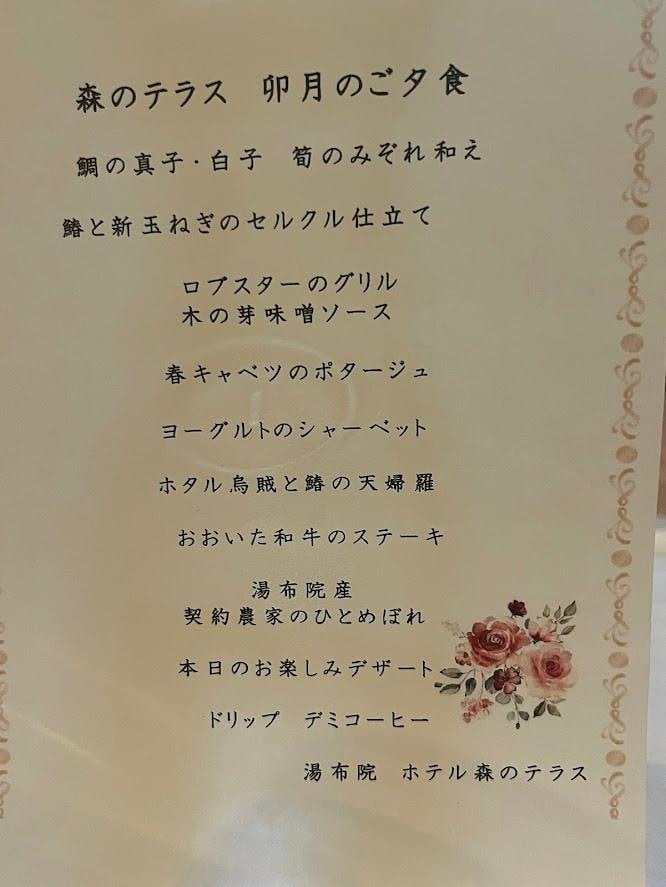 森のテラス 卯月のご夕食
鯛の真子・白子 筍のみぞれ和え
鰆と新玉ねぎのセルクル仕立て
ロブスターのグリル
木の芽味噌ソース
春キャベツのポタージュ
ヨーグルトのシャーベット
ホタル烏賊と鰆の天婦羅
おおいた和牛のステーキ
湯布院産
契約農家のひとめぼれ
本日のお楽しみデザート
ドリップ デミコーヒー
湯布院 ホテル森のテラス